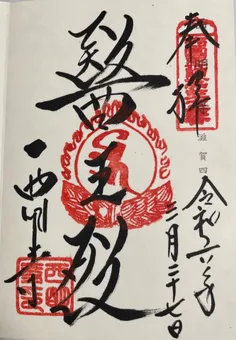 奉拝
滋賀四
令和六年
三月二十七日
醫王殿
西明寺